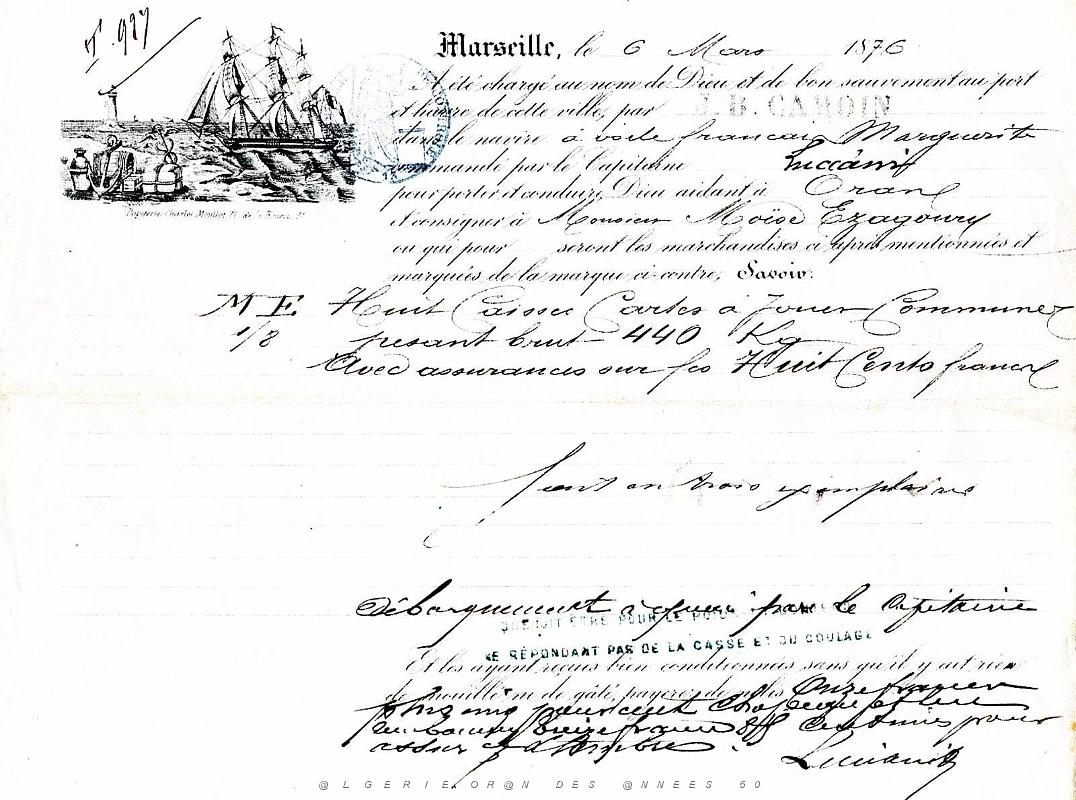 N°. 997
Marseille, le 6 Mars 1876
A été chargé au nom de Dieu et de bon sauvement au port
et havre de cette ville, par J. B. CAMOIN
dans le navire à voile français Marguerite
commandé par le Capitaine Lucciani
pour porter et conduire, Dieu aidant à Oran
et consigner à Monsieur Moïse Ezagoury
ou qui pour seront les marchandises ci après mentionnées et
marquées de la marque ci contre, Savoir:
Papeterie Charles Mouillot
M E Huit Caisses Cartes à Jouer Communes
1/8 pesant brut 440 Kg
Avec assurances sur fcs Huit Cents francs
en trois exemplaires
Débarquement à quai par le Capitaine
QUE DIT ÊTRE POUR LE POIDS
NE RÉPONDANT PAS DE LA CASSE ET DU COULAGE
Et les ayant reçues bien conditionnées sans qu'il y ait rien
de mouillé ni de gâté, payerez de nolis Onze francs
pour cent
francs centimes pour
Lucciani
@LGERIE OR@N DES @NNEES 60